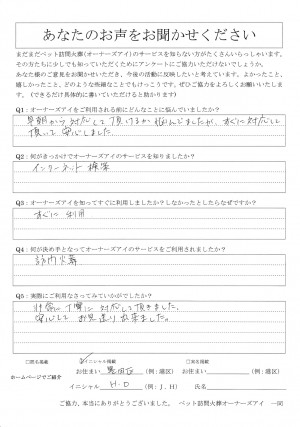 あなたのお声をお聞かせください
まだまだペット訪問火葬(オーナーズアイ)のサービスを知らない方がたくさんいらっしゃいます。
その方たちに少しでも知っていただくためにアンケートにご協力いただけないでしょうか。
あなた様のご意見をお聞かせいただき、今後の活動に反映したいと考えています。よかったこと、
嬉しかったこと、どのような些細なことでもけっこうです。ぜひご協力をよろしくお願いいたしま
す。(できるだけ具体的に書いていただけると助かります)
Q1：オーナーズアイをご利用される前にどんなことに悩んでいましたか？
早朝から対応して頂けるか悩んでましたが、すぐに対応して
頂いて安心しました
Q2：何がきっかけでオーナーズアイのサービスを知りましたか？
インターネット検索
Q3：オーナーズアイを知ってすぐに利用しましたか？しなかったとしたらなぜですか？
すぐに利用
Q4：何が決め手となってオーナーズアイのサービスをご利用されましたか？
訪問火葬
Q5：実際にご利用なさってみていかがでしたか？
非常に丁寧に対応して頂きました。
安心してお見送り出来ました。
□匿名掲載 □イニシャル掲載 □実名掲載
ホームページでご紹介
お住まい 墨田区 (例：港区) お住まい (例：港区)
イニシャル H・O (例：J．H) 氏名
ご協力、本当にありがとうございました。 ペット訪問火葬オーナーズアイ 一同